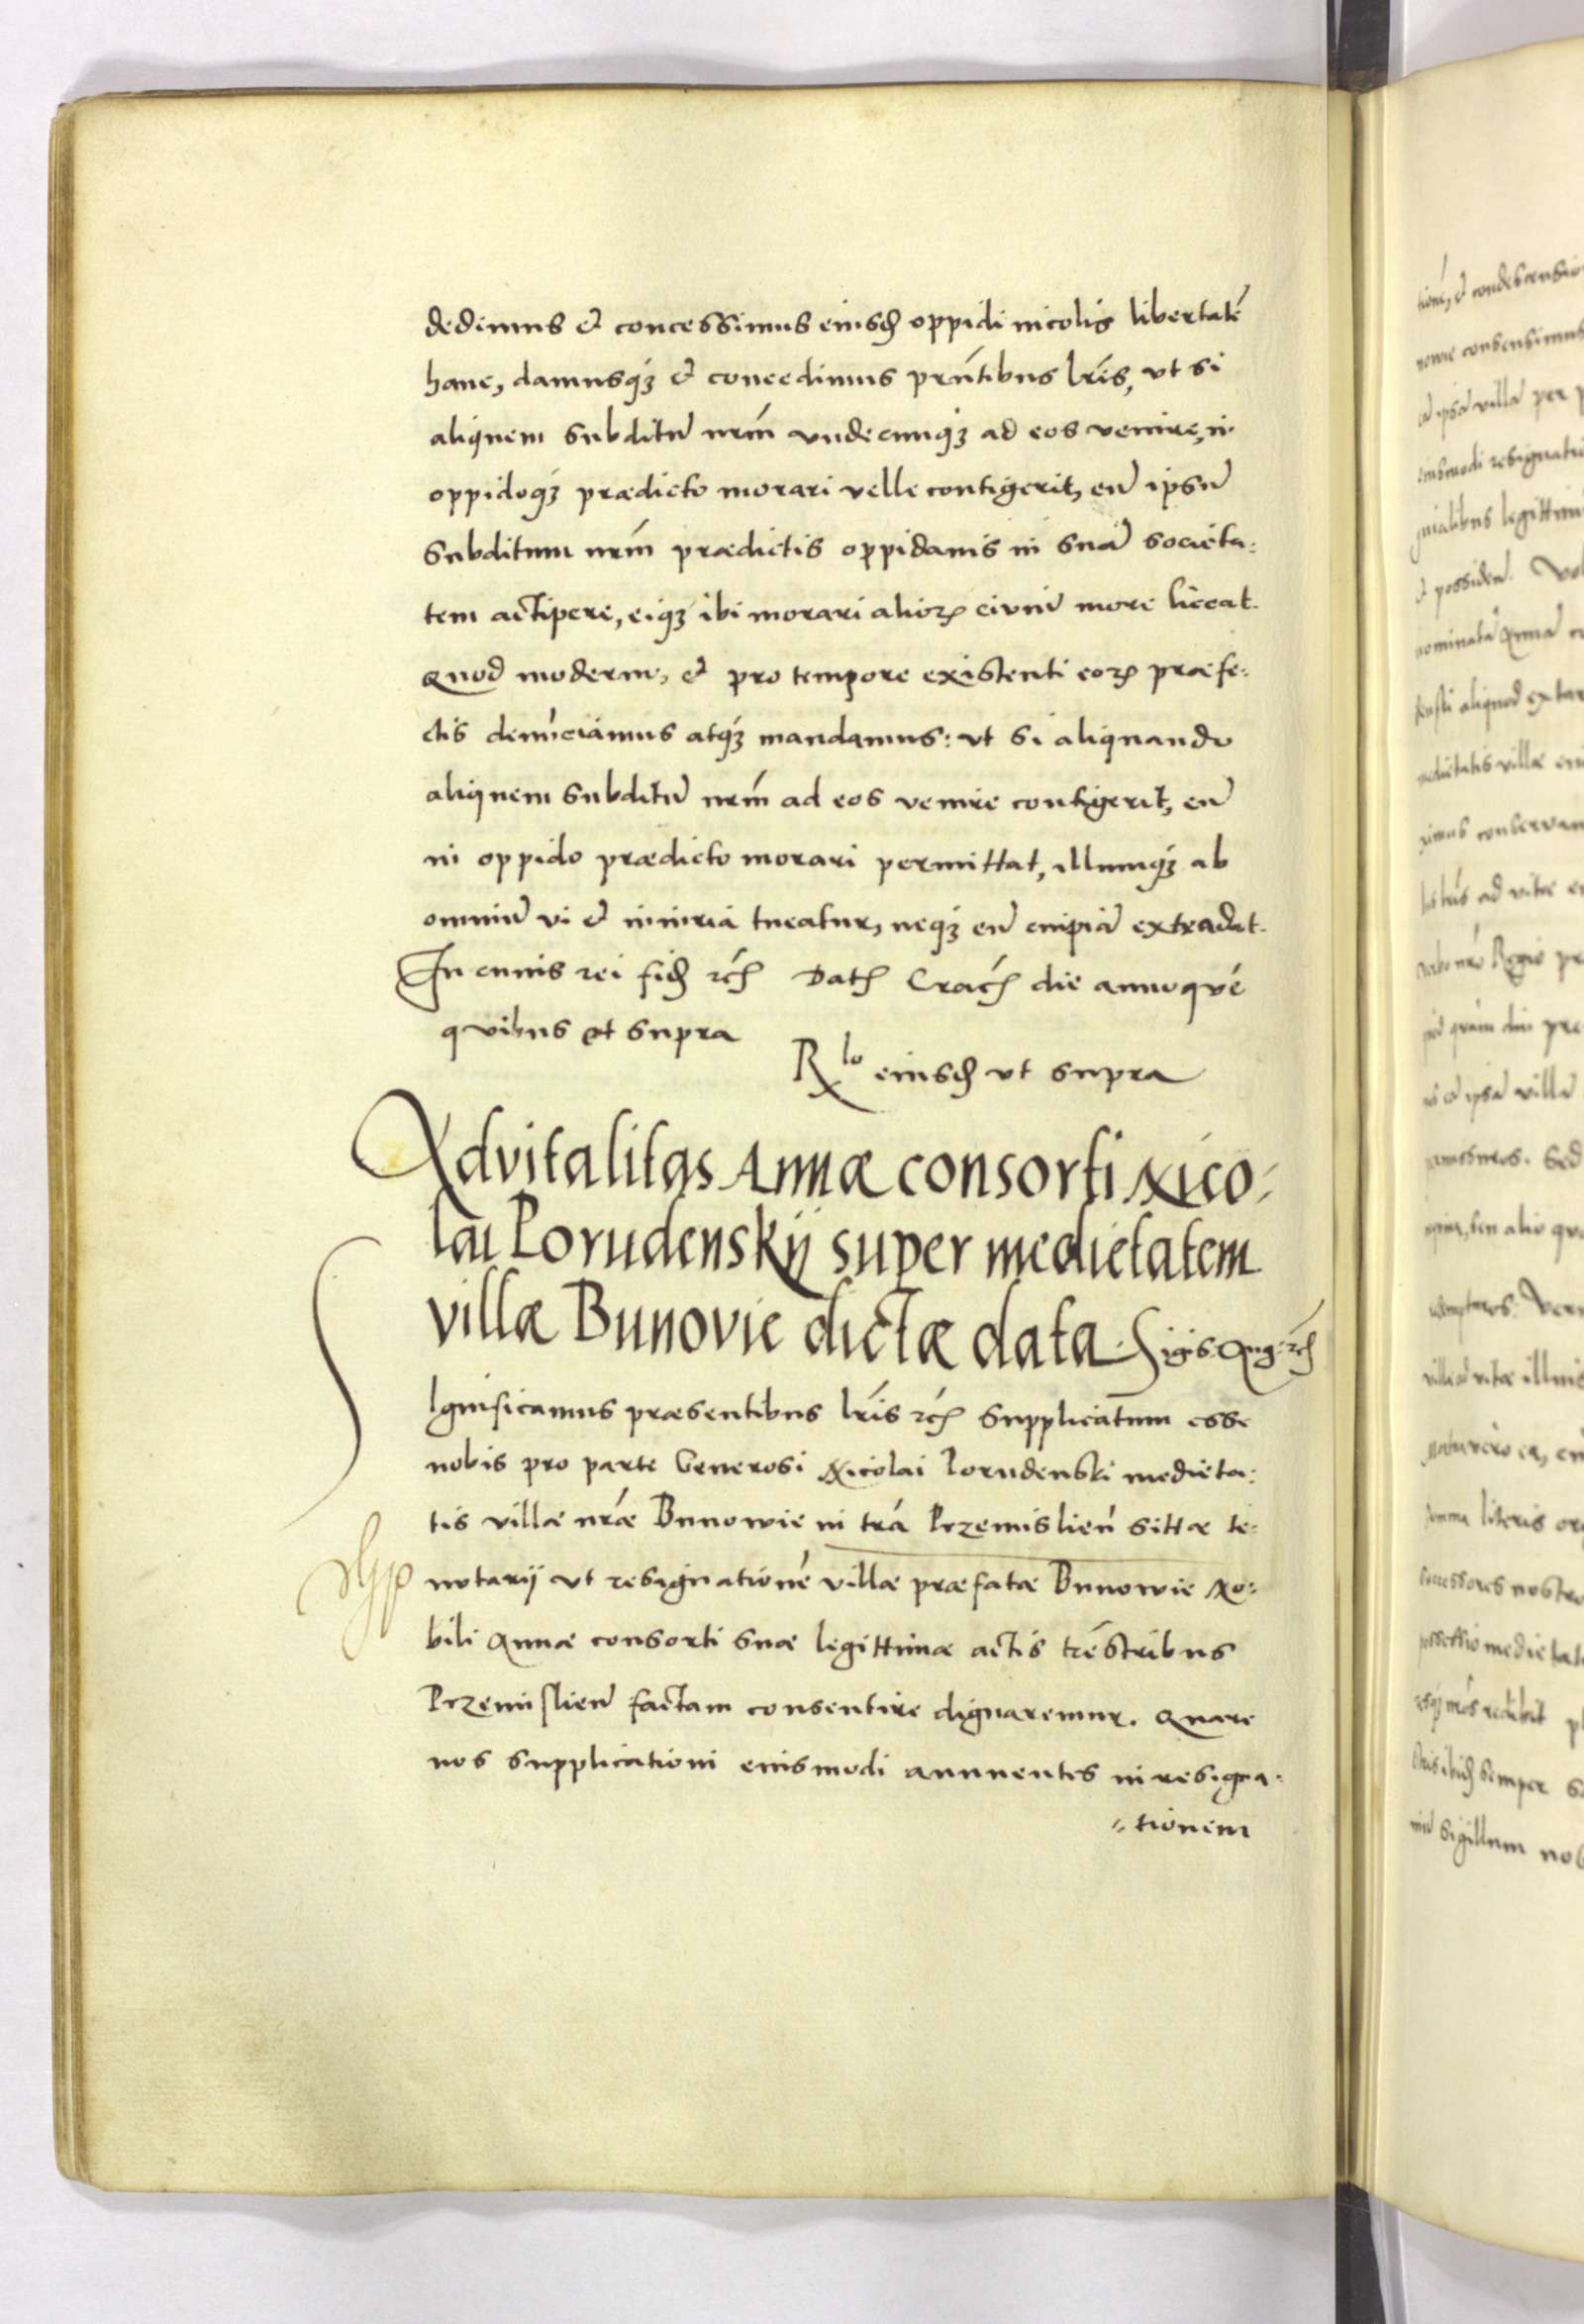 dedimus & concessimus eiusdẽ oppidi incolis libertatẽ
hanc, damusq́ȝ & concedimus pr̃ntibus lr̃is, vt si
aliquem subditũ nr̃m vndecunq́ȝ ad eos venire, in
oppidoq́ȝ prædicto morari velle contigerit, eũ ipsũ
subditum nr̃m prædictis oppidanis in suã societa:
tem accipere, eiq́ȝ ibi morari alioꝝ civiũ more liceat.
Quod moderno, & pro tempore existenti eoꝝ præfe:
ctis denũciamus atq́ȝ mandamus: vt si aliquando
aliquem subditũ nr̃m ad eos venire contigerit, eũ
in oppido prædicto morari permittat, illumq́ȝ ab
omniũ vi & iniuria tueatur, neq́ȝ eũ cuipiã extradat.
In cuius rei fidẽ etc̃ Datũ Crac̃ die annoqué
quibus et supra
Rlo eiusdẽ vt supra
Advitalitas Annæ consorti Nico:
lai Porudenskij super medietatem
villæ Bunovie dictæ data. Sigis: Aug: etc̃
SIgnificamus præsentibus lr̃is etc̃ supplicatum esse
nobis pro parte Generosi Nicolai Porudenski medieta:
tis villæ nr̃æ Bunowie in tr̃a Przemislien̄ sittæ te:
notarij vt resignationẽ villæ præfatæ Bunowie No:
bili Annæ consorti suæ legittimæ actis tr̃estribus
Przemislien̄ factam consentire dignaremur. Quare
nos supplicationi eiusmodi annuentes in resigna:
tionem